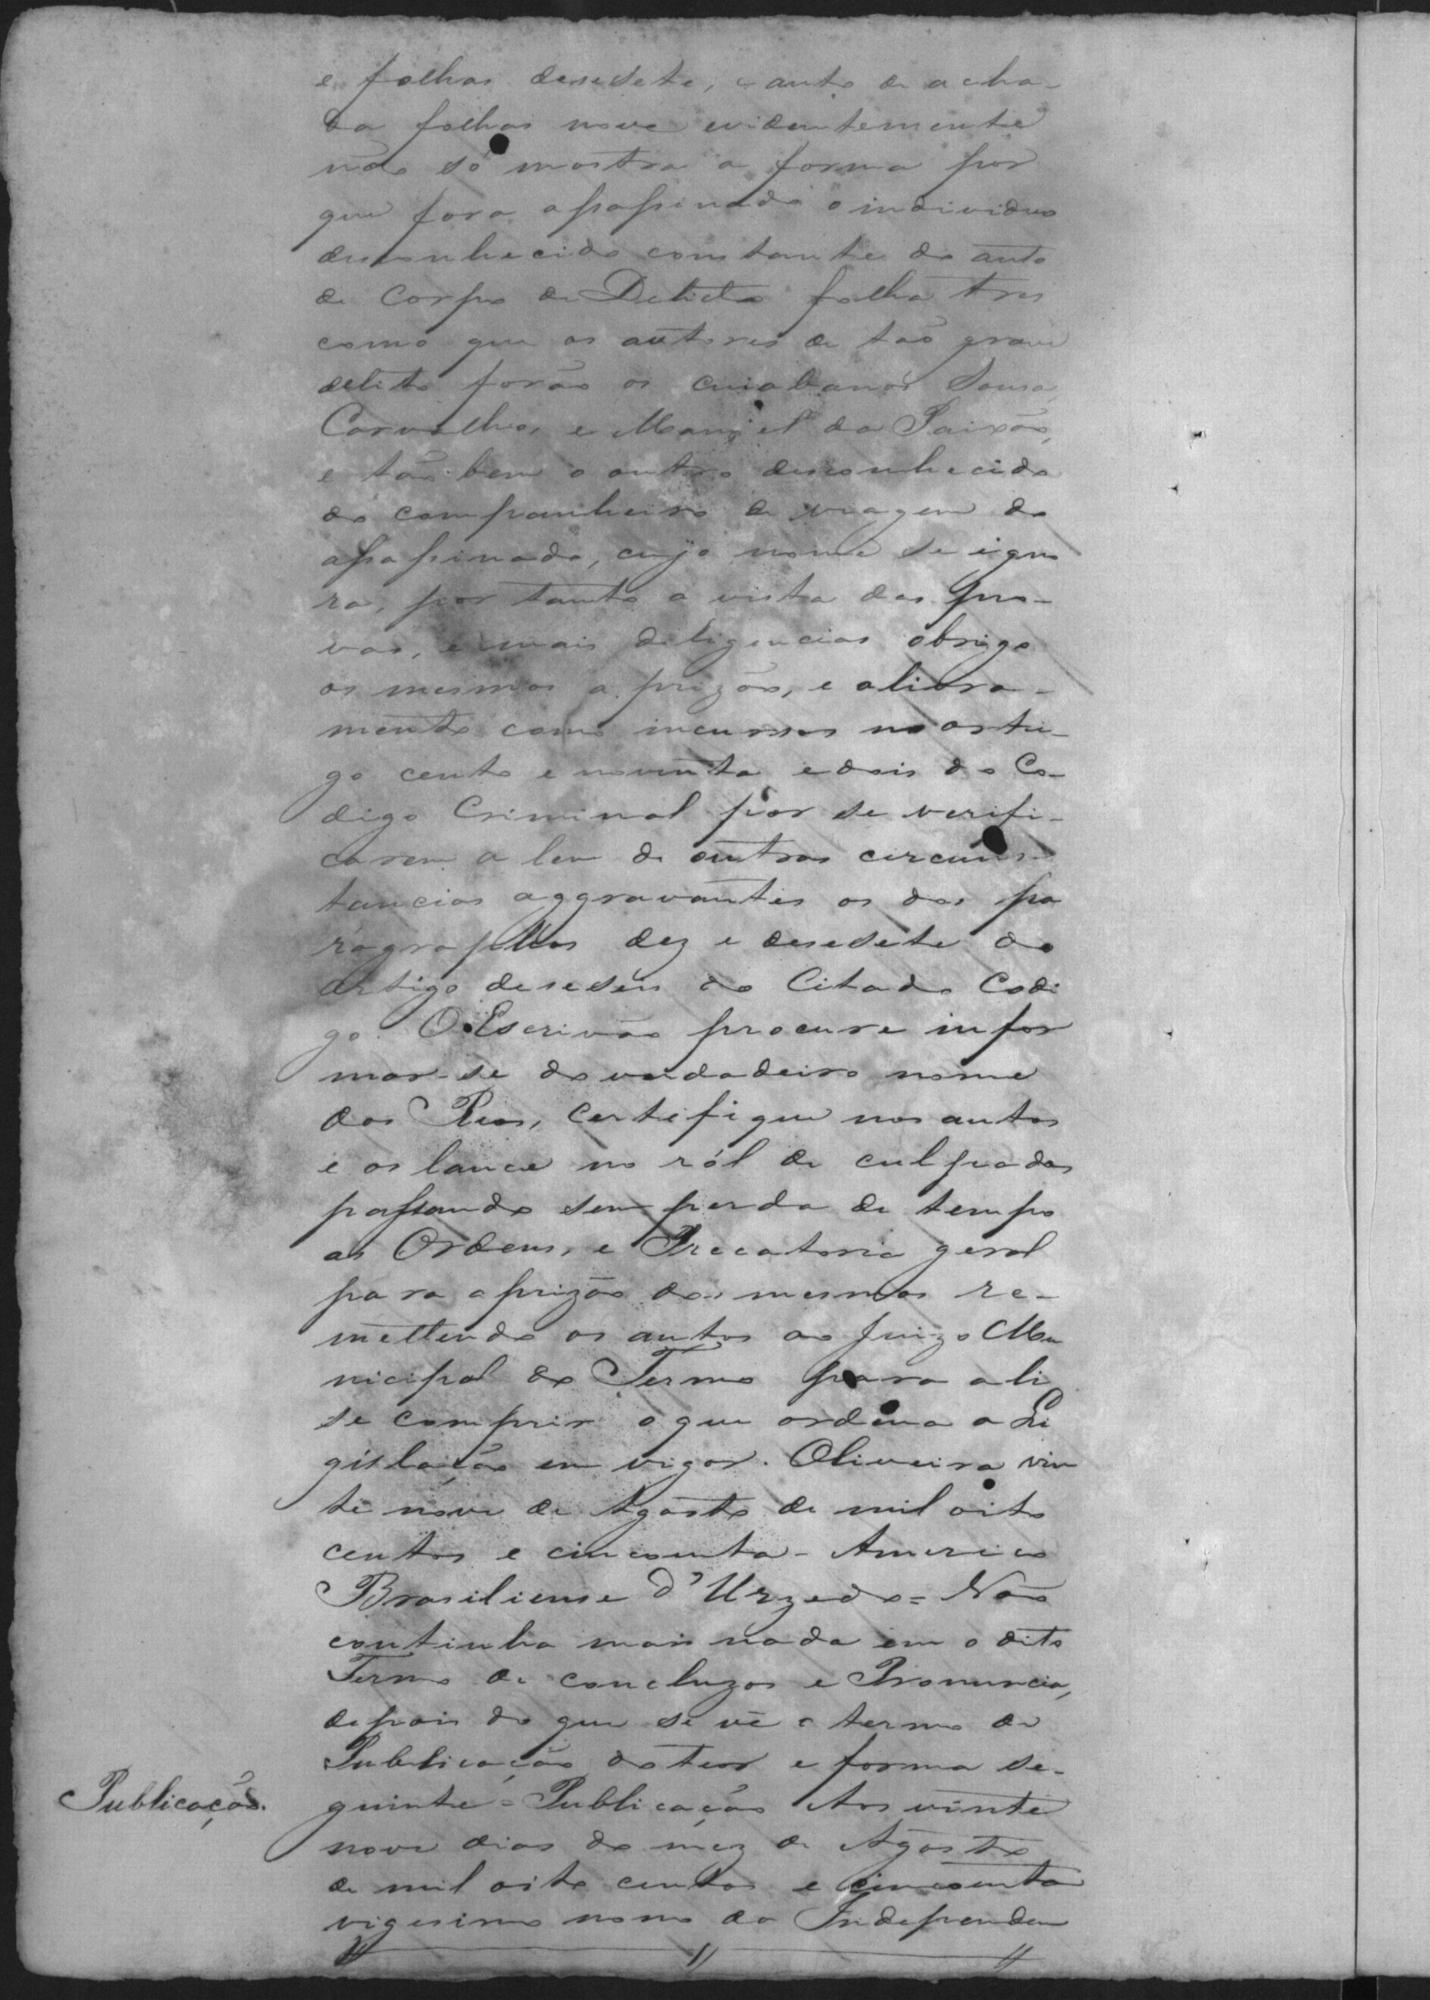 e folhas desesete, e auto de acha-
da folhas nove evidentemente
não só mostra a forma por
que fora assassinado o individuo
desconhecido constante do auto
de Corpo de Delicto folha tres
como que os autores de tão grave
delito forão os cuiabanos Sousa,
Carvalho, e Manoel da Paixão,
e tão bem o outro desconhecido
do companheiro de viagem do
assassinado, cujo nome se igno
ra, por tanto a vista das pro-
vas, e mais deligencias obrigo
os mesmos a prizão, e alivra-
mento como incursos no arti-
go cento e noventa e dois do Co-
digo Criminal por se verifi-
carem a lem de outras circuns-
tancias aggravantes as dos pa
ragraphos dez e desesete do
artigo deseseis do Citado Codi
go. O Escrivão procure infor
mar-se do verdadeiro nome
dos Reos, certifique nos autos
e os lance no ról de culpados
passando sem perda de tempo
as Ordens, e Precatoria geral
para a prizão dos mesmos re-
mettendo os autos ao Juizo Mu
nicipal do Termo para ali
se comprir o que ordena a Le
gislação em vigor. Oliveira vin
te nove de Agosto de mil oito
centos e cincoenta - Americo
Brasiliense d'Urzedo = Não
continha mais nada em o dito
Termo de concluzos e Pronuncia,
depois do que se vê o termo de
Publicação do teor e forma se-
Publicação.
guinte = Publicação Aos vinte
nove dias do mez de Agosto
de mil oito centos e cincoenta
vigesimo nono da Independen